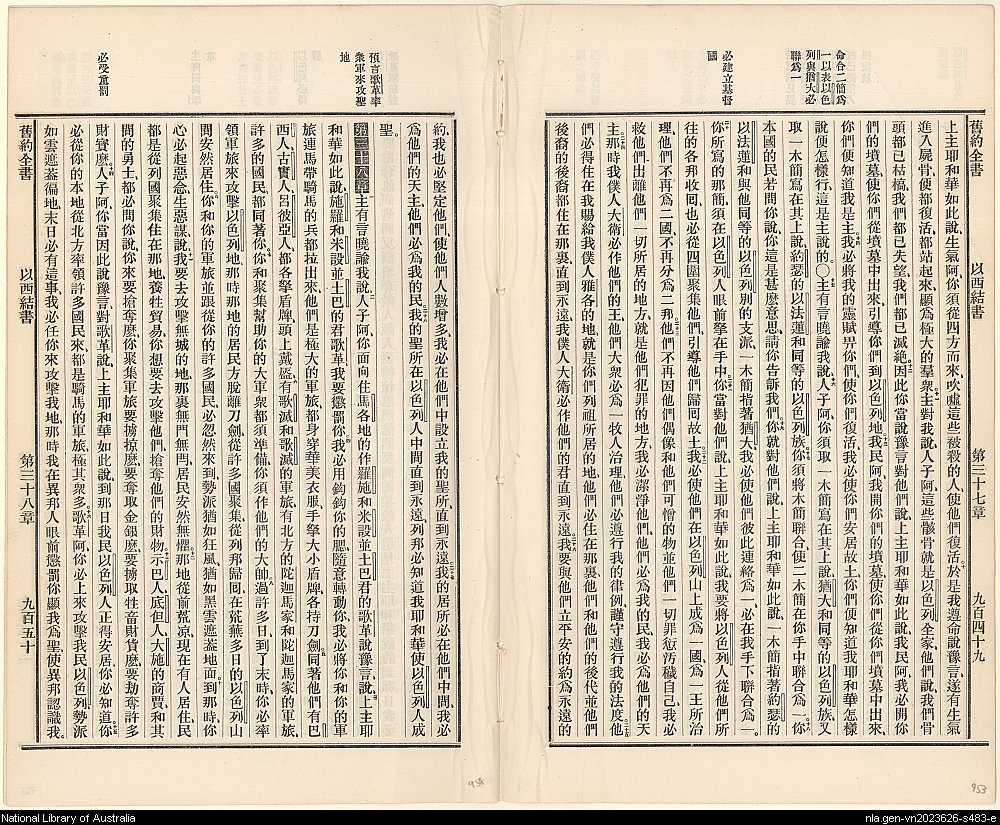 舊約全書 以西結書 第三十七章 九百四十九
命合二簡爲
一以表以色
列與猶大必
聯爲一
必建立基督
國
上主耶和華如此說、生氣阿、你須從四方而來、吹噓這些被殺的人、使他們復活、於是我遵命說豫言、遂有生氣
進入屍骨、便都復活、都站起來、顯爲極大的羣衆、主對我說、人子阿、這些骸骨就是以色列全家、他們說、我們骨
頭都已枯槁、我們都已失望、我們都已滅絶、因此你當說豫言、對他們說、上主耶和華如此說、我民阿、我必開你
們的墳墓、使你們從墳墓中出來、引導你們到以色列地、我民阿、我開你們的墳墓、使你們從你們墳墓中出來、
你們便知道我是主、我必將我的靈賦畀你們、使你們復活、我必使你們安居故土、你們便知道我耶和華怎樣
說、便怎樣行、這是主說的、○主有言曉諭我說、人子阿、你須取一木簡、寫在其上說、猶大和同等的以色列族、又
取一木簡、寫在其上說、約瑟的以法蓮和同等的以色列族、你須將木簡聯合、使二木簡在你手中聯合爲一、你
本國的民若問你說、你這是甚麽意思、請你告訴我們、你就對他們說、上主耶和華如此說、一木簡指著約瑟的
以法蓮、和與他同等的以色列別的支派、一木簡指著猶大、我必使他們彼此連絡爲一、必在我手下聯合爲一、
你所寫的那簡、須在以色列人眼前拏在手中、你當對他們說、上主耶和華如此說、我要將以色列人從他們所
往的各邦收囘、也必從四圍聚集他們、引導他們歸囘故土、我必使他們在那地、在以色列山上、成爲一國、爲一王所治
理、他們不再爲二國、不再分爲二邦、他們不再因他們偶像和他們可憎的物、並他們一切罪愆、汚穢自己、我必
救他們出離他們一切所居的地方、就是他們犯罪的地方、我必潔淨他們、他們必爲我的民、我必爲他們的天
主、那時我僕人大衛必作他們的王、他們大衆必爲一牧人治理、他們必遵行我的律例、謹守遵行我的法度、他
們必得住在我賜給我僕人雅各的地、就是你們列祖所居的地、他們必住在那裏、他們和他們的後代、並他們
後裔的後裔、都住在那裏、直到永遠、我僕人大衛必作他們的君、直到永遠、我要與他們立平安的約、爲永遠的
預言歌革率
衆軍來攻聖
地
必受重罰
約、我也必堅定他們、使他們人數增多、我必在他們中間設立我的聖所、直到永遠、我的居所必在他們中間、我必
爲他們的天主、他們必爲我的民、我的聖所在以色列人中間、直到永遠、列邦必知道我耶和華使以色列人成
聖。
第三十八章 主有言曉諭我說、人子阿、你面向住馬各地的作羅施和米設並土巴君的歌革、說豫言、說、上主耶
和華如此說、施羅和米設並土巴的君歌革、我要懲罰你、我必用鈎鈎你的腮、隨意轉動你、我必將你和你的軍
旅、連馬帶騎馬的兵、都拉出來、他們是極大的軍旅、都身穿華美衣服、手拏大小盾牌、各持刀劍、同著他們有巴
西人、古實人、呂彼亞人、都各拏盾牌、頭上戴盔、有歌滅和歌滅的軍旅、有北方的陀迦馬家、和陀迦馬家的軍旅、
許多的國民、都同著你、你和聚集幫助你的大軍衆、都須準備、你須作他們的大帥、過許多日、到了末時、你必率
領軍旅來攻擊以色列地、那時那地的居民方脫離刀劍、從許多國聚集、從列邦歸囘、在荒蕪多日的以色列山
間、安然居住、你和你的軍旅、並跟從你的許多國民、必忽然來到、勢派猶如狂風、猶如黑雲遮蓋地面、到那時、你
心必起惡念、生惡謀、說、我要去攻擊無城的地、那裏無門無閂、居民安然無懼、那地從前荒凉、現在有人居住、民
都是從列國聚集、住在那地、養牲貿易、你想要去攻擊他們、搶奪他們的財物、示巴人、底但人、大施的商賈、和其
間的勇士、都必問你說、你來要搶奪麽、你聚集軍旅、要擄掠麽、要奪取金銀麽、要擄取牲畜財貨麽、要劫奪許多
財寶麽、人子阿、你當因此說豫言、對歌革說、上主耶和華如此說、到那日我民以色列人正得安居、你必知道、你
必從你的本地、從北方率領許多國民來、都是騎馬的軍旅、極其衆多、歌革阿、你必上來攻擊我民以色列、勢派
如雲遮蓋徧地、末日必有這事、我必任你來攻擊我地、那時我在異邦人眼前懲罰你、顯我爲聖、使異邦認識我。
舊約全書 以西結書 第三十八章 九百五十
951
953
National Library of Australia
nla.gen-vn2023626-s483-e